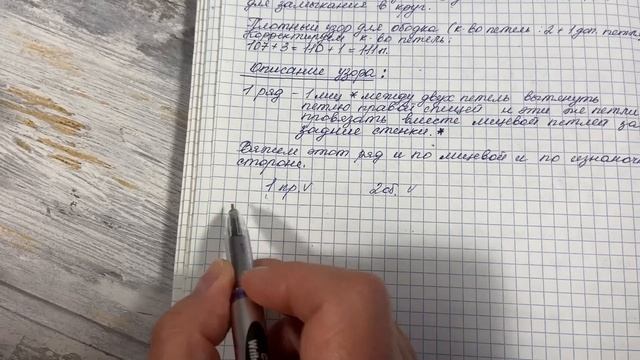 для замыкания в круг.
Плотный узор для ободка (к-во петель : 2 + 1 доп. петл
Корректируем к-во петель:
107 + 3 = 110 + 1 = 111 п.
Описание узора:
1 ряд - 1 лиц * между двух петель вытянуть
петлю правой спицей и эти же петли
провязать вместе лицевой петлей за
задние стенки. *
Вяжем этот ряд и по лицевой и по изнаноч
стороне.
1 пр. v 2 об. v